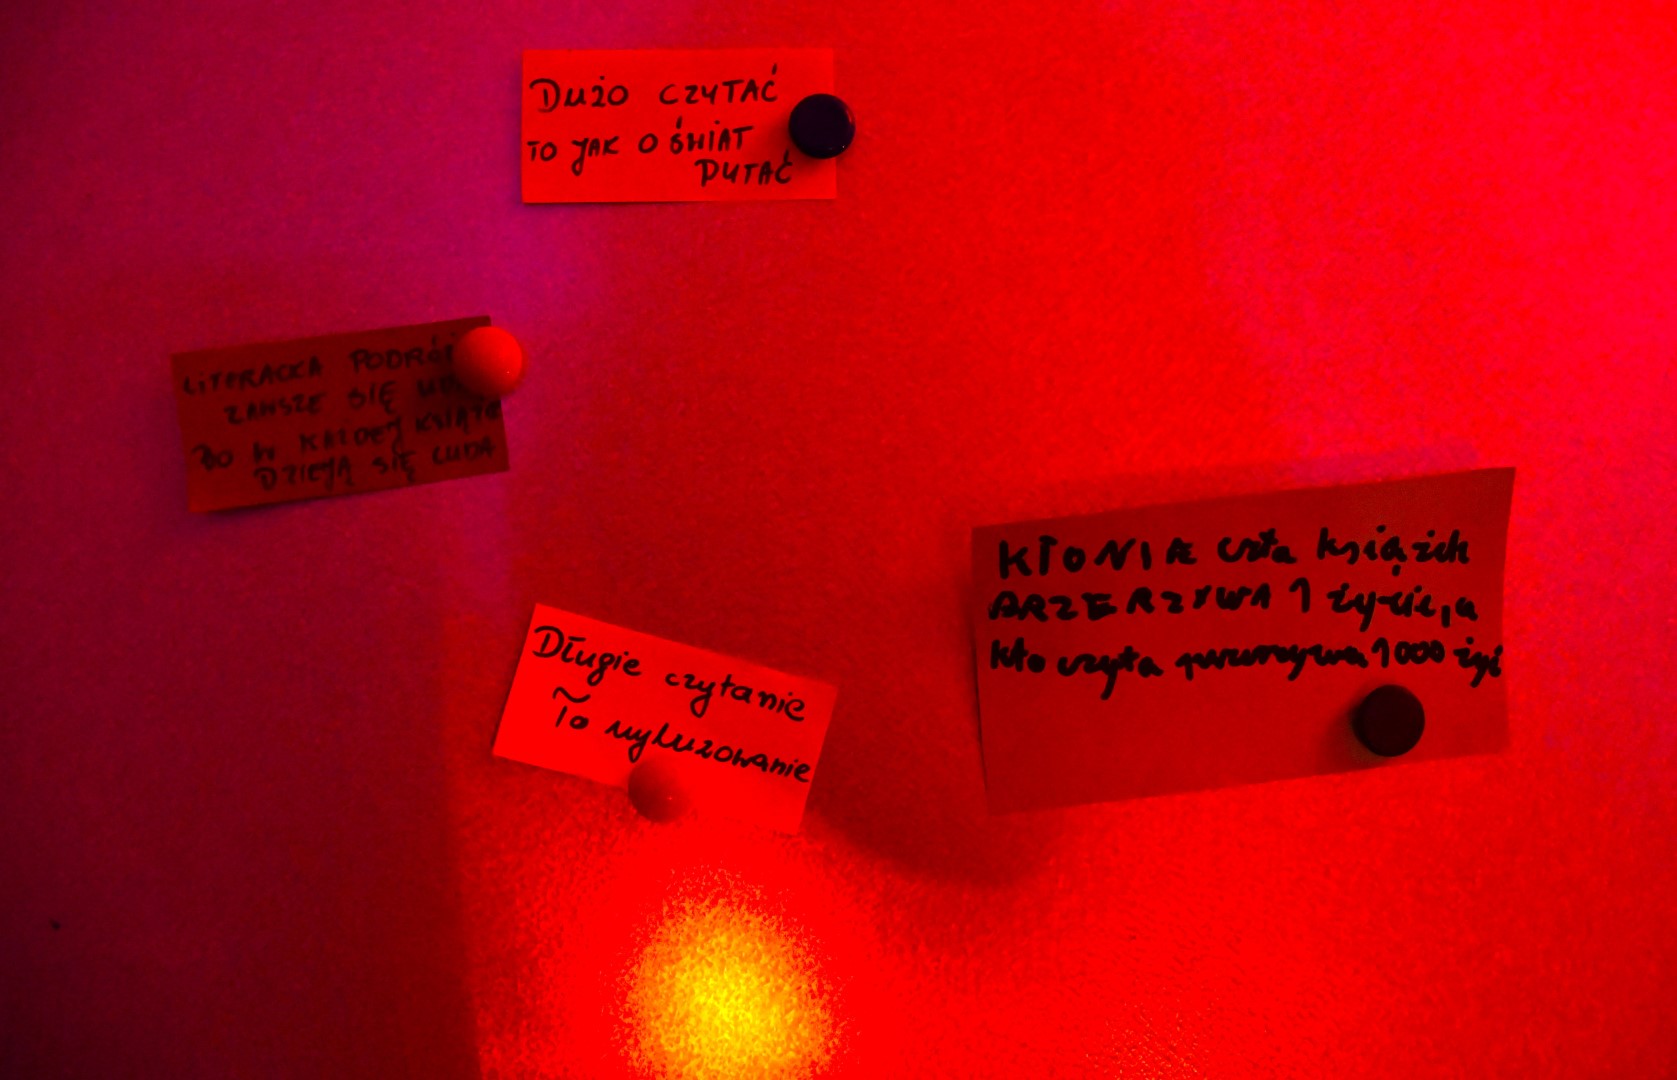 DUŻO CZYTAĆ
TO JAK O ŚWIAT
PYTAĆ
LITERACKA
ZAWSZE SIĘ
BO W KAŻDEJ
DZIEJĄ SIĘ CUDA
Długie czytanie
To wyluzowanie
KTO NIE czta książek
PRZERZYWA 1 życie, a
kto czyta przerzywa 1000 żyć